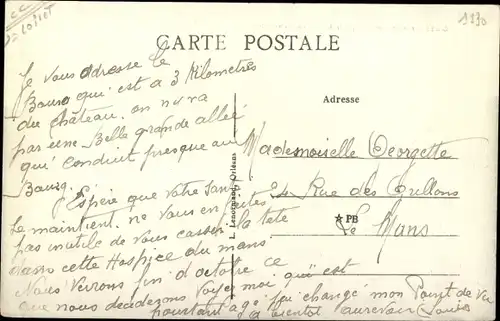 Loiret
1130
CARTE POSTALE
Adresse
Je vous adresse le
Bourg qui est a 3 Kilometres
du château. on y va
par une Belle grande allée
qui conduit presque au
Bourg.
Espère que votre Santé
Se maintient. ne vous en faites
pas inutile de vous casser la tete
dans cette Hospice du mans
Nous Verrons fin d'octobre ce
que nous deciderons Voyez moi qui est
pourtant agé j'ai changé mon Point de Vue
a bientot aurevoir
Louis
L. Lenormand, Orléans
Mademoiselle Georgette
Rue des Crullons
PB
Le Mans